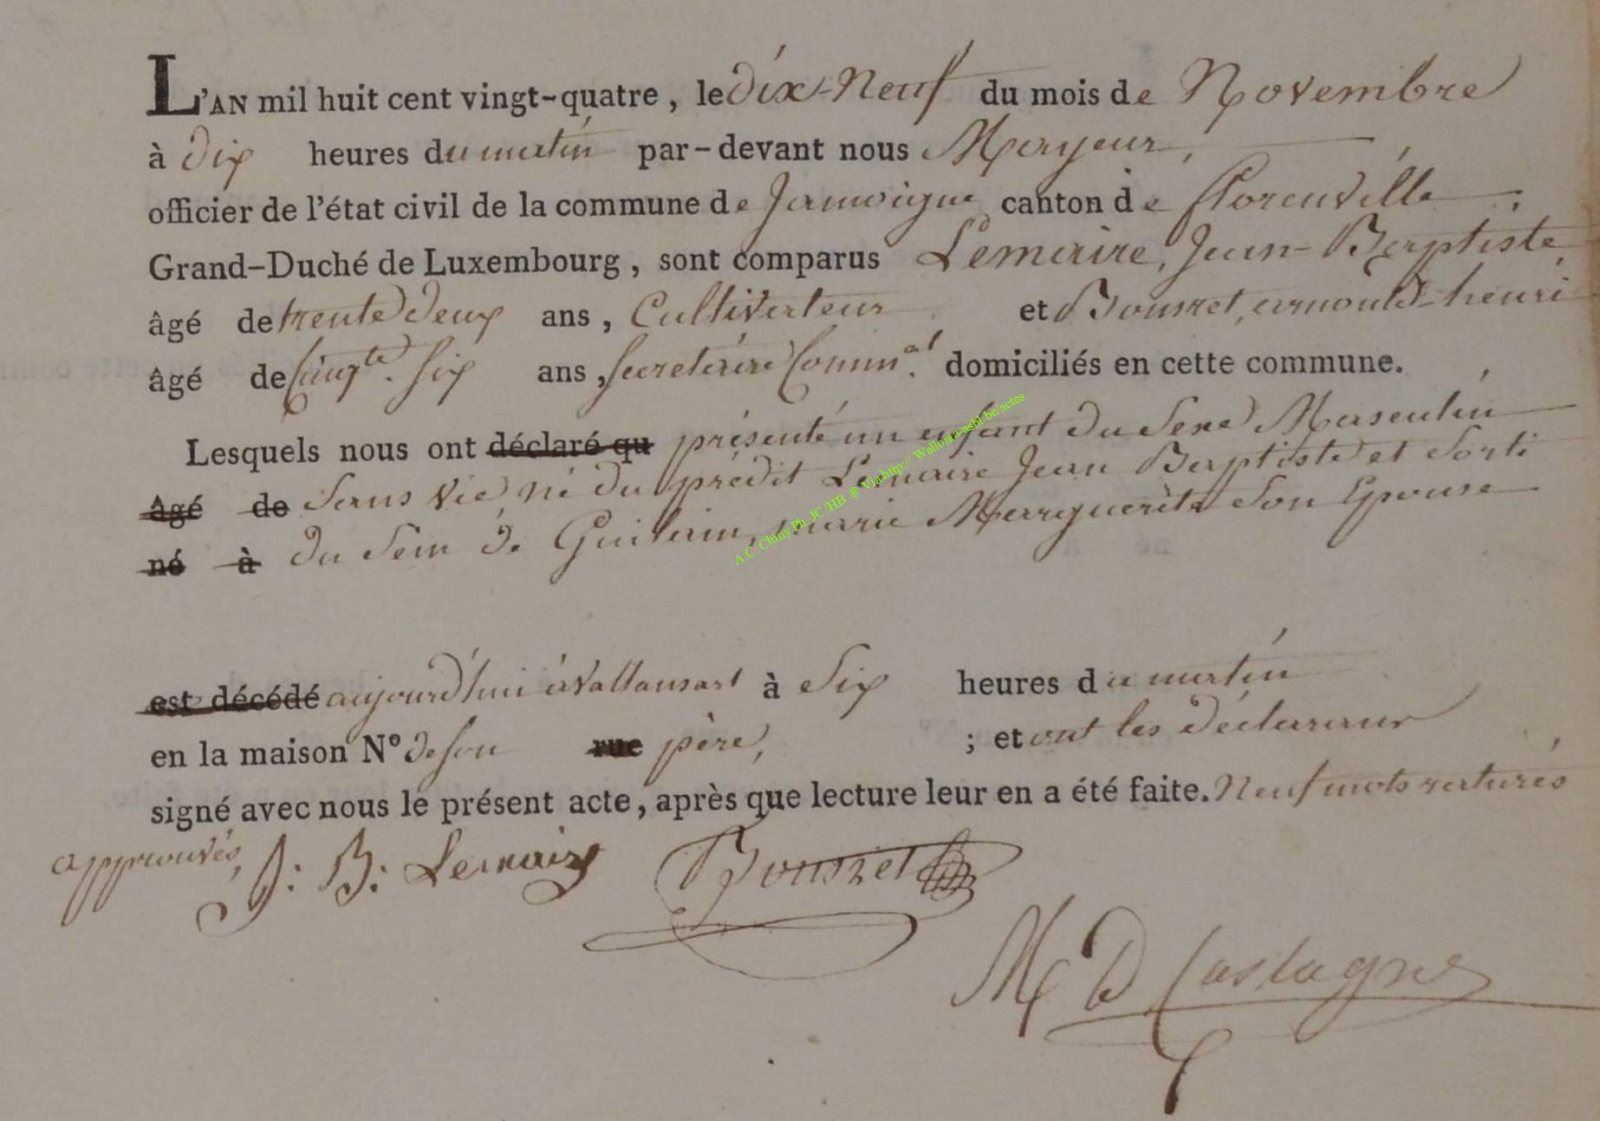 L'AN mil huit cent vingt-quatre, le dix-Neuf du mois de Novembre
à dix heures du matin par-devant nous Mayeur,
officier de l'état civil de la commune de Jamoigne canton de florenville,
Grand-Duché de Luxembourg, sont comparus Lemaire, Jean-Baptiste,
âgé de trente deux ans, Cultivateur et Bousret, arnould-henri
âgé de Cinqte. Six ans, secretaire Commal. domiciliés en cette commune.
Lesquels nous ont déclaré qu présenté un enfant du Sexe Masculin
âgé de Sans vie né du prédit Lemaire Jean Baptiste et Sorti
né à du Sein de marie Marguerite Son Epouse
est décédé aujourd'hui à Vallansart à Six heures du matin
en la maison N° de son rue père, ; et ont les déclarans
signé avec nous le présent acte, après que lecture leur en a été faite. Neuf mots raturés
approuvés, J: B: Lemaire Bousret
M D Castagne
A.C. Chiny Ph JC/HB ® Via http://Wallonia-asbl-be/actes